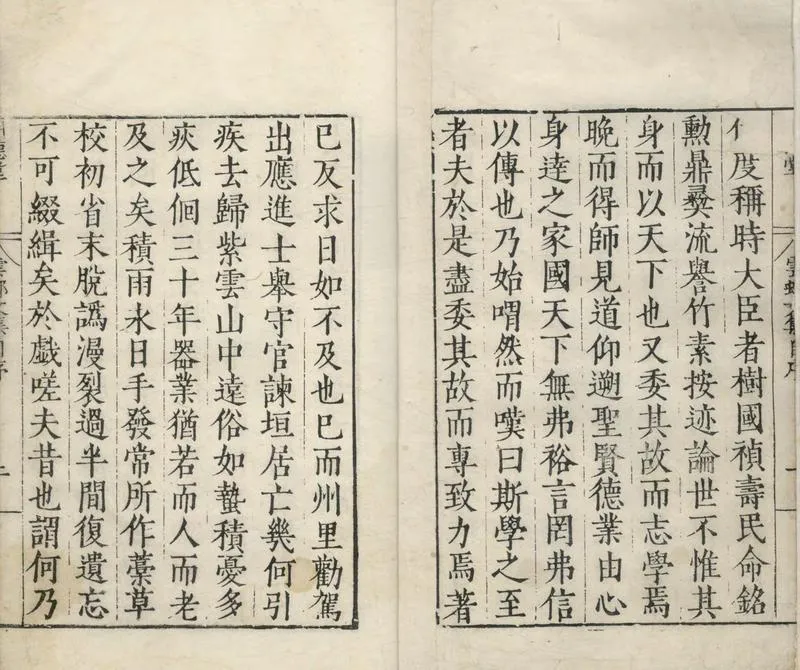 度稱時大臣者樹國禎壽民命銘
勳鼎彝流譽竹素按迹論世不惟其
身而以天下也又委其故而志學焉
晚而得師見道仰遡聖賢德業由心
身達之家國天下無弗裕言罔弗信
以傳也乃始喟然而嘆曰斯學之至
者夫於是盡委其故而專致力焉著
已反求日如不及也已而州里勸駕
出應進士舉守官諫垣居亡幾何引
疾去歸紫雲山中遠俗如蟄積憂多
疢低佪三十年器業猶若而人而老
及之矣積雨永日手發常所作藳草
校初省末脫譌漫裂過半間復遺忘
不可綴緝矣於戲嗟夫昔也謂何乃